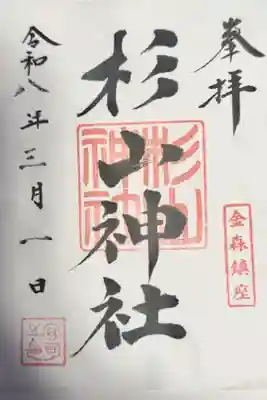 奉拝
金森鎮座
杉山神社
杉山神社
令和八年三月一日